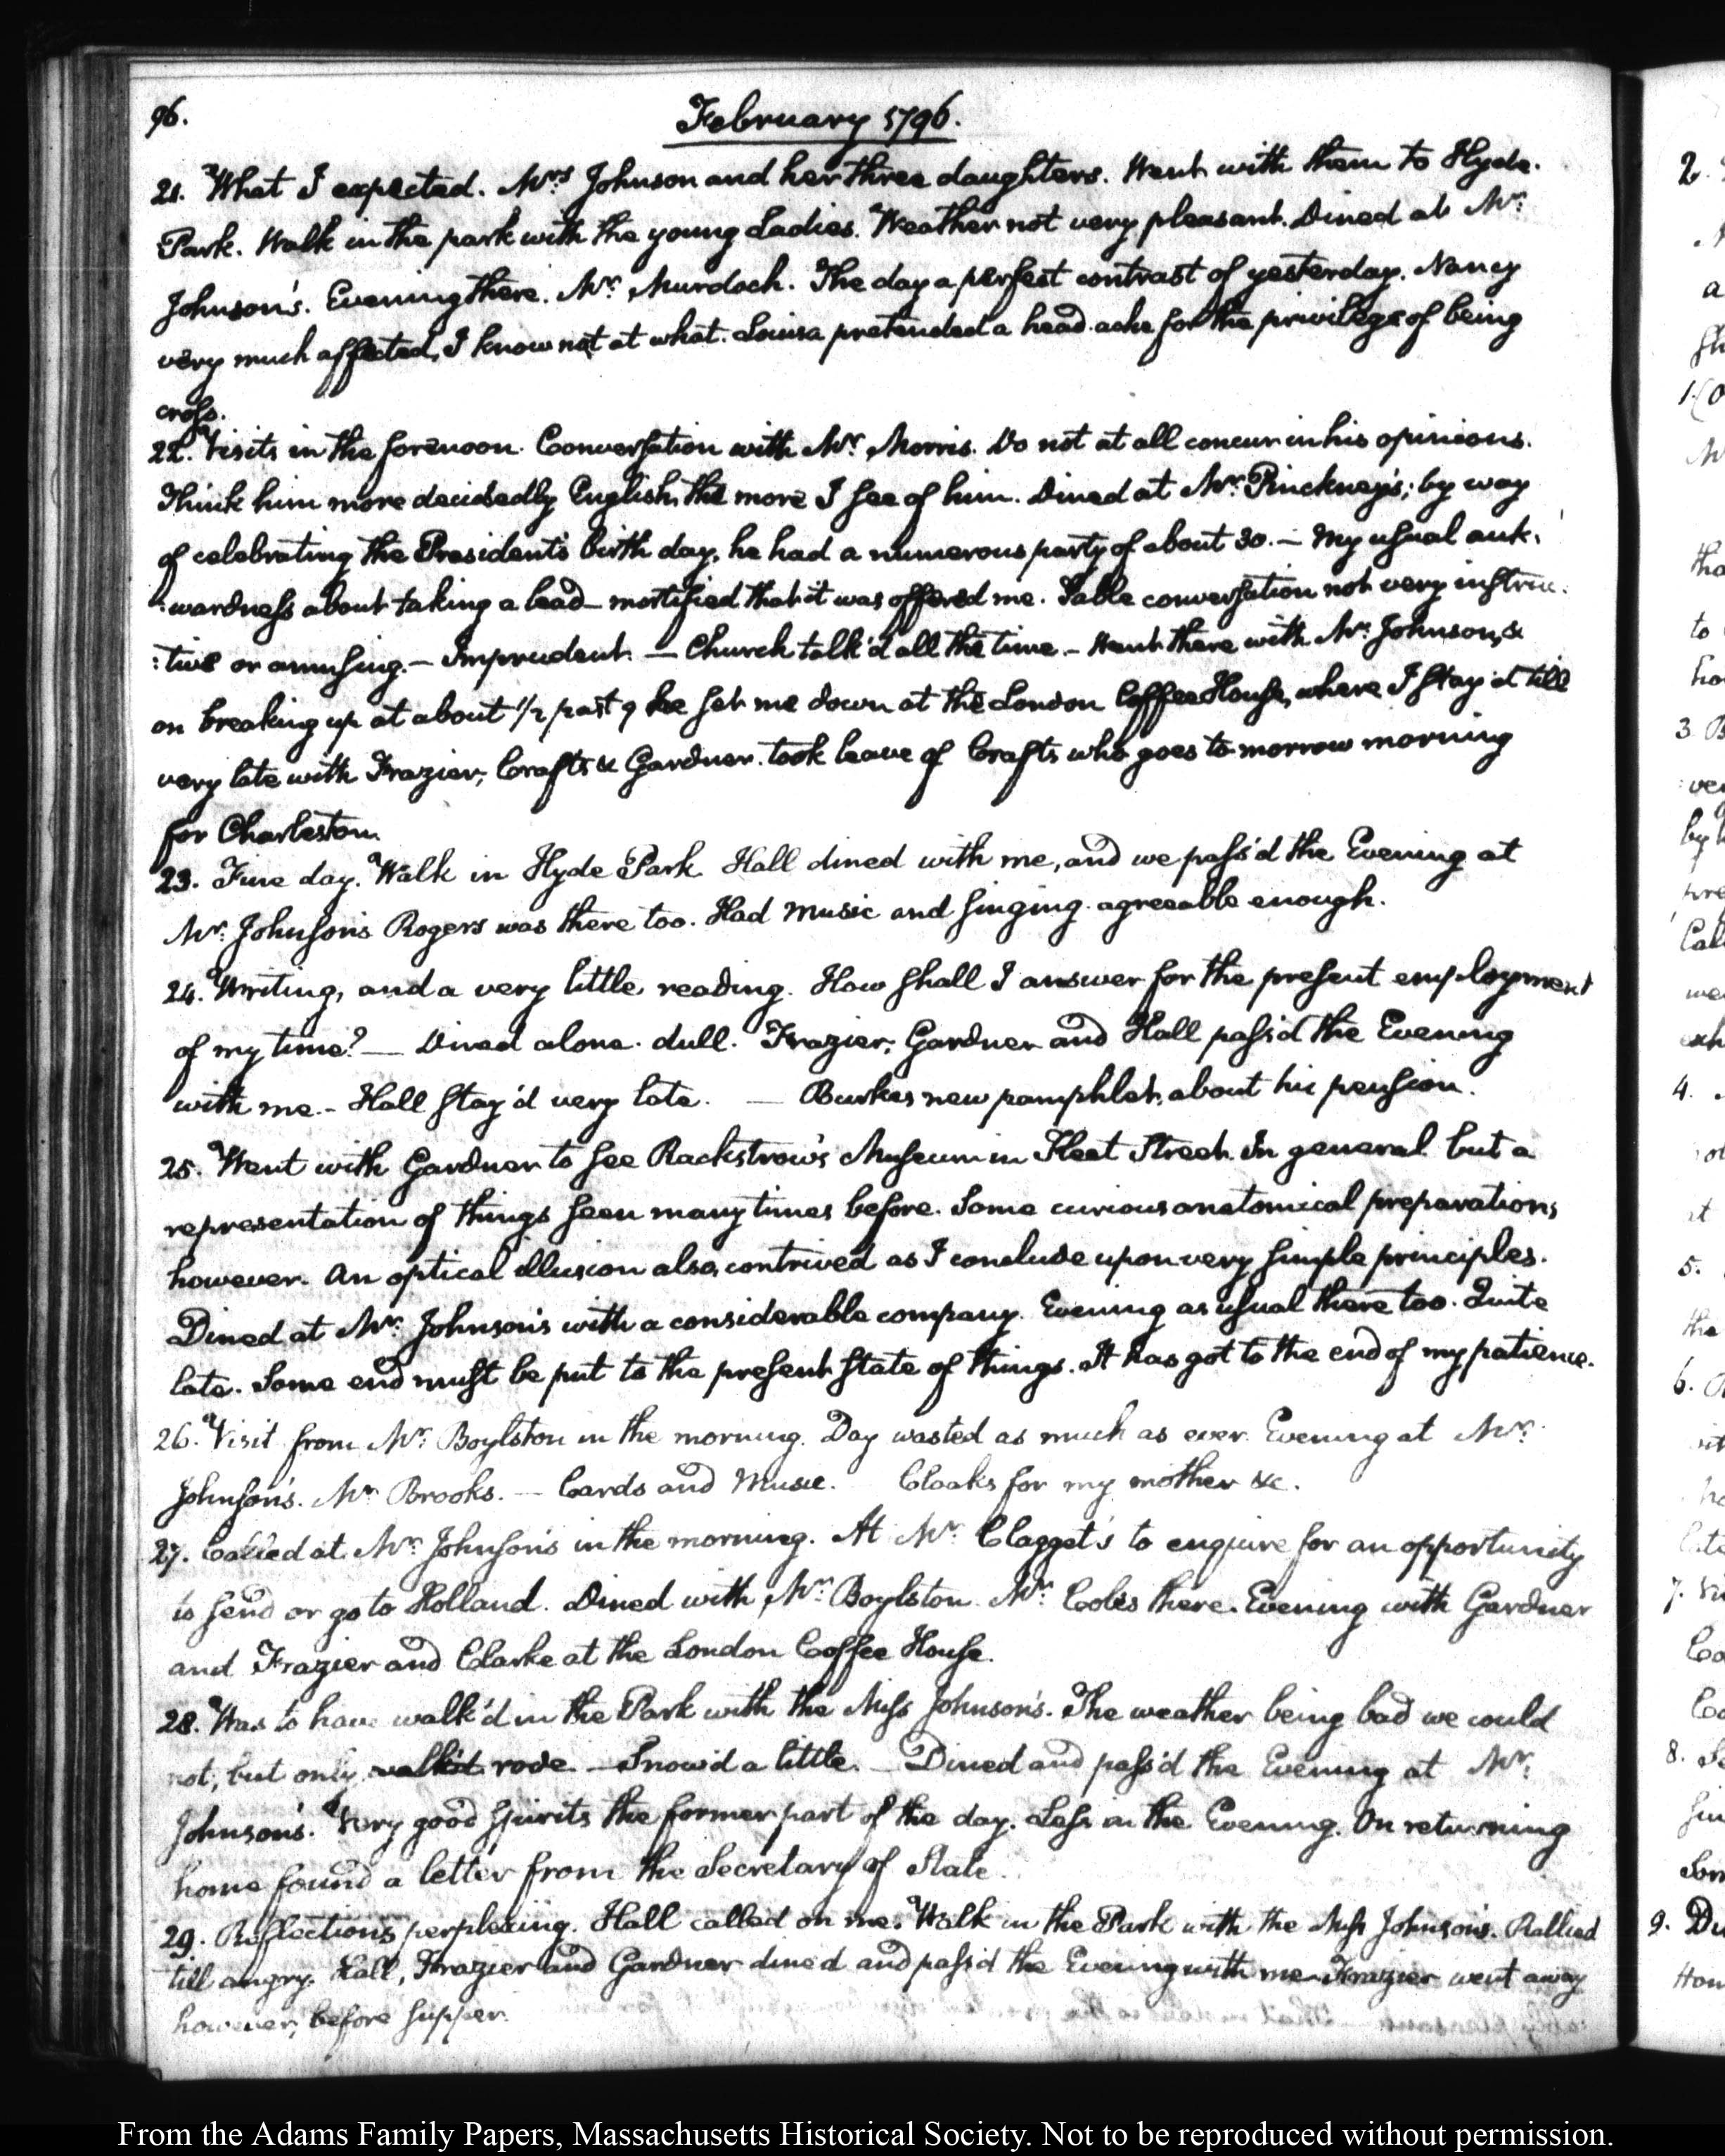 96.
February 1796.
21. What I expected. Mrs Johnson and her three daughters. Went with them to Hyde-
Park. Walk in the park with the young Ladies. Weather not very pleasant. Dined at Mr:
Johnson's. Evening there. Mr: Murdoch. The day a perfect contrast of yesterday. Nancy
very much affected, I know not at what. Louisa pretended a head-ache for the privilege of being
cross.
22. Visits in the forenoon. Conversation with Mr: Morris. Do not at all concur in his opinions.
Think him more decidedly English, the more I see of him. Dined at Mr: Pinckney's; by way
of celebrating the President's birth day, he had a numerous party of about 30. — My usual auk-
:wardness about taking a lead— mortified that it was offered me. Table conversation not very instruc:
:tive or amusing. — Imprudent. — Church talk'd all the time. — Went there with Mr: Johnson, &
on breaking up at about 1/2 past 9 he set me down at the London Coffee House, where I stay'd till
very late with Frazier, Crafts & Gardner. took leave of Crafts who goes to-morrow morning
for Charleston.
23. Fine day. Walk in Hyde Park. Hall dined with me, and we pass'd the Evening at
Mr: Johnson's Rogers was there too. Had Music and singing. agreeable enough.
24. Writing, and a very little, reading. How shall I answer for the present employment
of my time? — Dined alone. dull. Frazier, Gardner and Hall pass'd the Evening
with me. - Hall stay'd very late. — Burkes new pamphlet, about his pension.
25. Went with Gardner to see Rackstrow's Museum in Fleet Street. In general but a
representation of things seen many times before. Some curious anatomical preparations,
however. An optical illusion also, contrived as I conclude upon very simple principles.
Dined at Mr: Johnson's with a considerable company. Evening as usual there too. Quite
late. Some end must be put to the present state of things. It has got to the end of my patience.
26. Visit from Mr: Boylston in the morning. Day wasted as much as ever. Evening at Mr:
Johnson's. Mr: Brooks. — Cards and Music. Cloaks for my mother &c.
27. Called at Mr: Johnson's in the morning. At Mr: Clagget's to enquire for an opportunity
to send or go to Holland. Dined with Mr: Boylston. Mr: Coles there. Evening with Gardner
and Frazier and Clarke at the London Coffee House.
28. Was to have walk'd in the Park with the Miss Johnson's. The weather being bad we could
not, but only walk'd rode. — Snow'd a little. — Dined and pass'd the Evening at Mr:
Johnson's. Very good spirits the former part of the day. Less in the Evening. On returning
home found a letter from the Secretary of State.
29. Reflections perplexing. Hall called on me. Walk in the Park with the Miss Johnson's. Rallied
till angry. Hall, Frazier and Gardner dined and pass'd the Evening with me. Frazier went away
however, before supper.
From the Adams Family Papers, Massachusetts Historical Society. Not to be reproduced without permission.